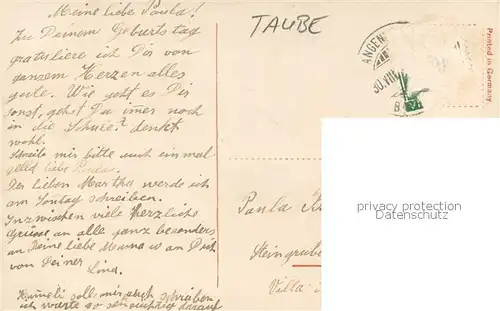 Meine liebe Paula!
Zu Deinem Geburtstag
gratuliere ich Dir von
ganzem Herzen alles
gute. Wie geht es Dir
sonst, gehst Du imer noch
in die Schule? denkt
wohl.
Schreibe mir bitte auch einmal
gelld liebe
Der lieben Martha werde ich
am Sontag schreiben.
Inzwischen viele Herzliche
Grüsse an alle ganz besonders
an Deine liebe Mama u an Dich
von Deiner
Lina.
soll mir auch schreiben
ich warte so sehnsüchtig darauf
TAUBE
ANGEN
30.VIII
Printed in Germany
Paula
Steingrube
Villa
privater
Datenschutz.